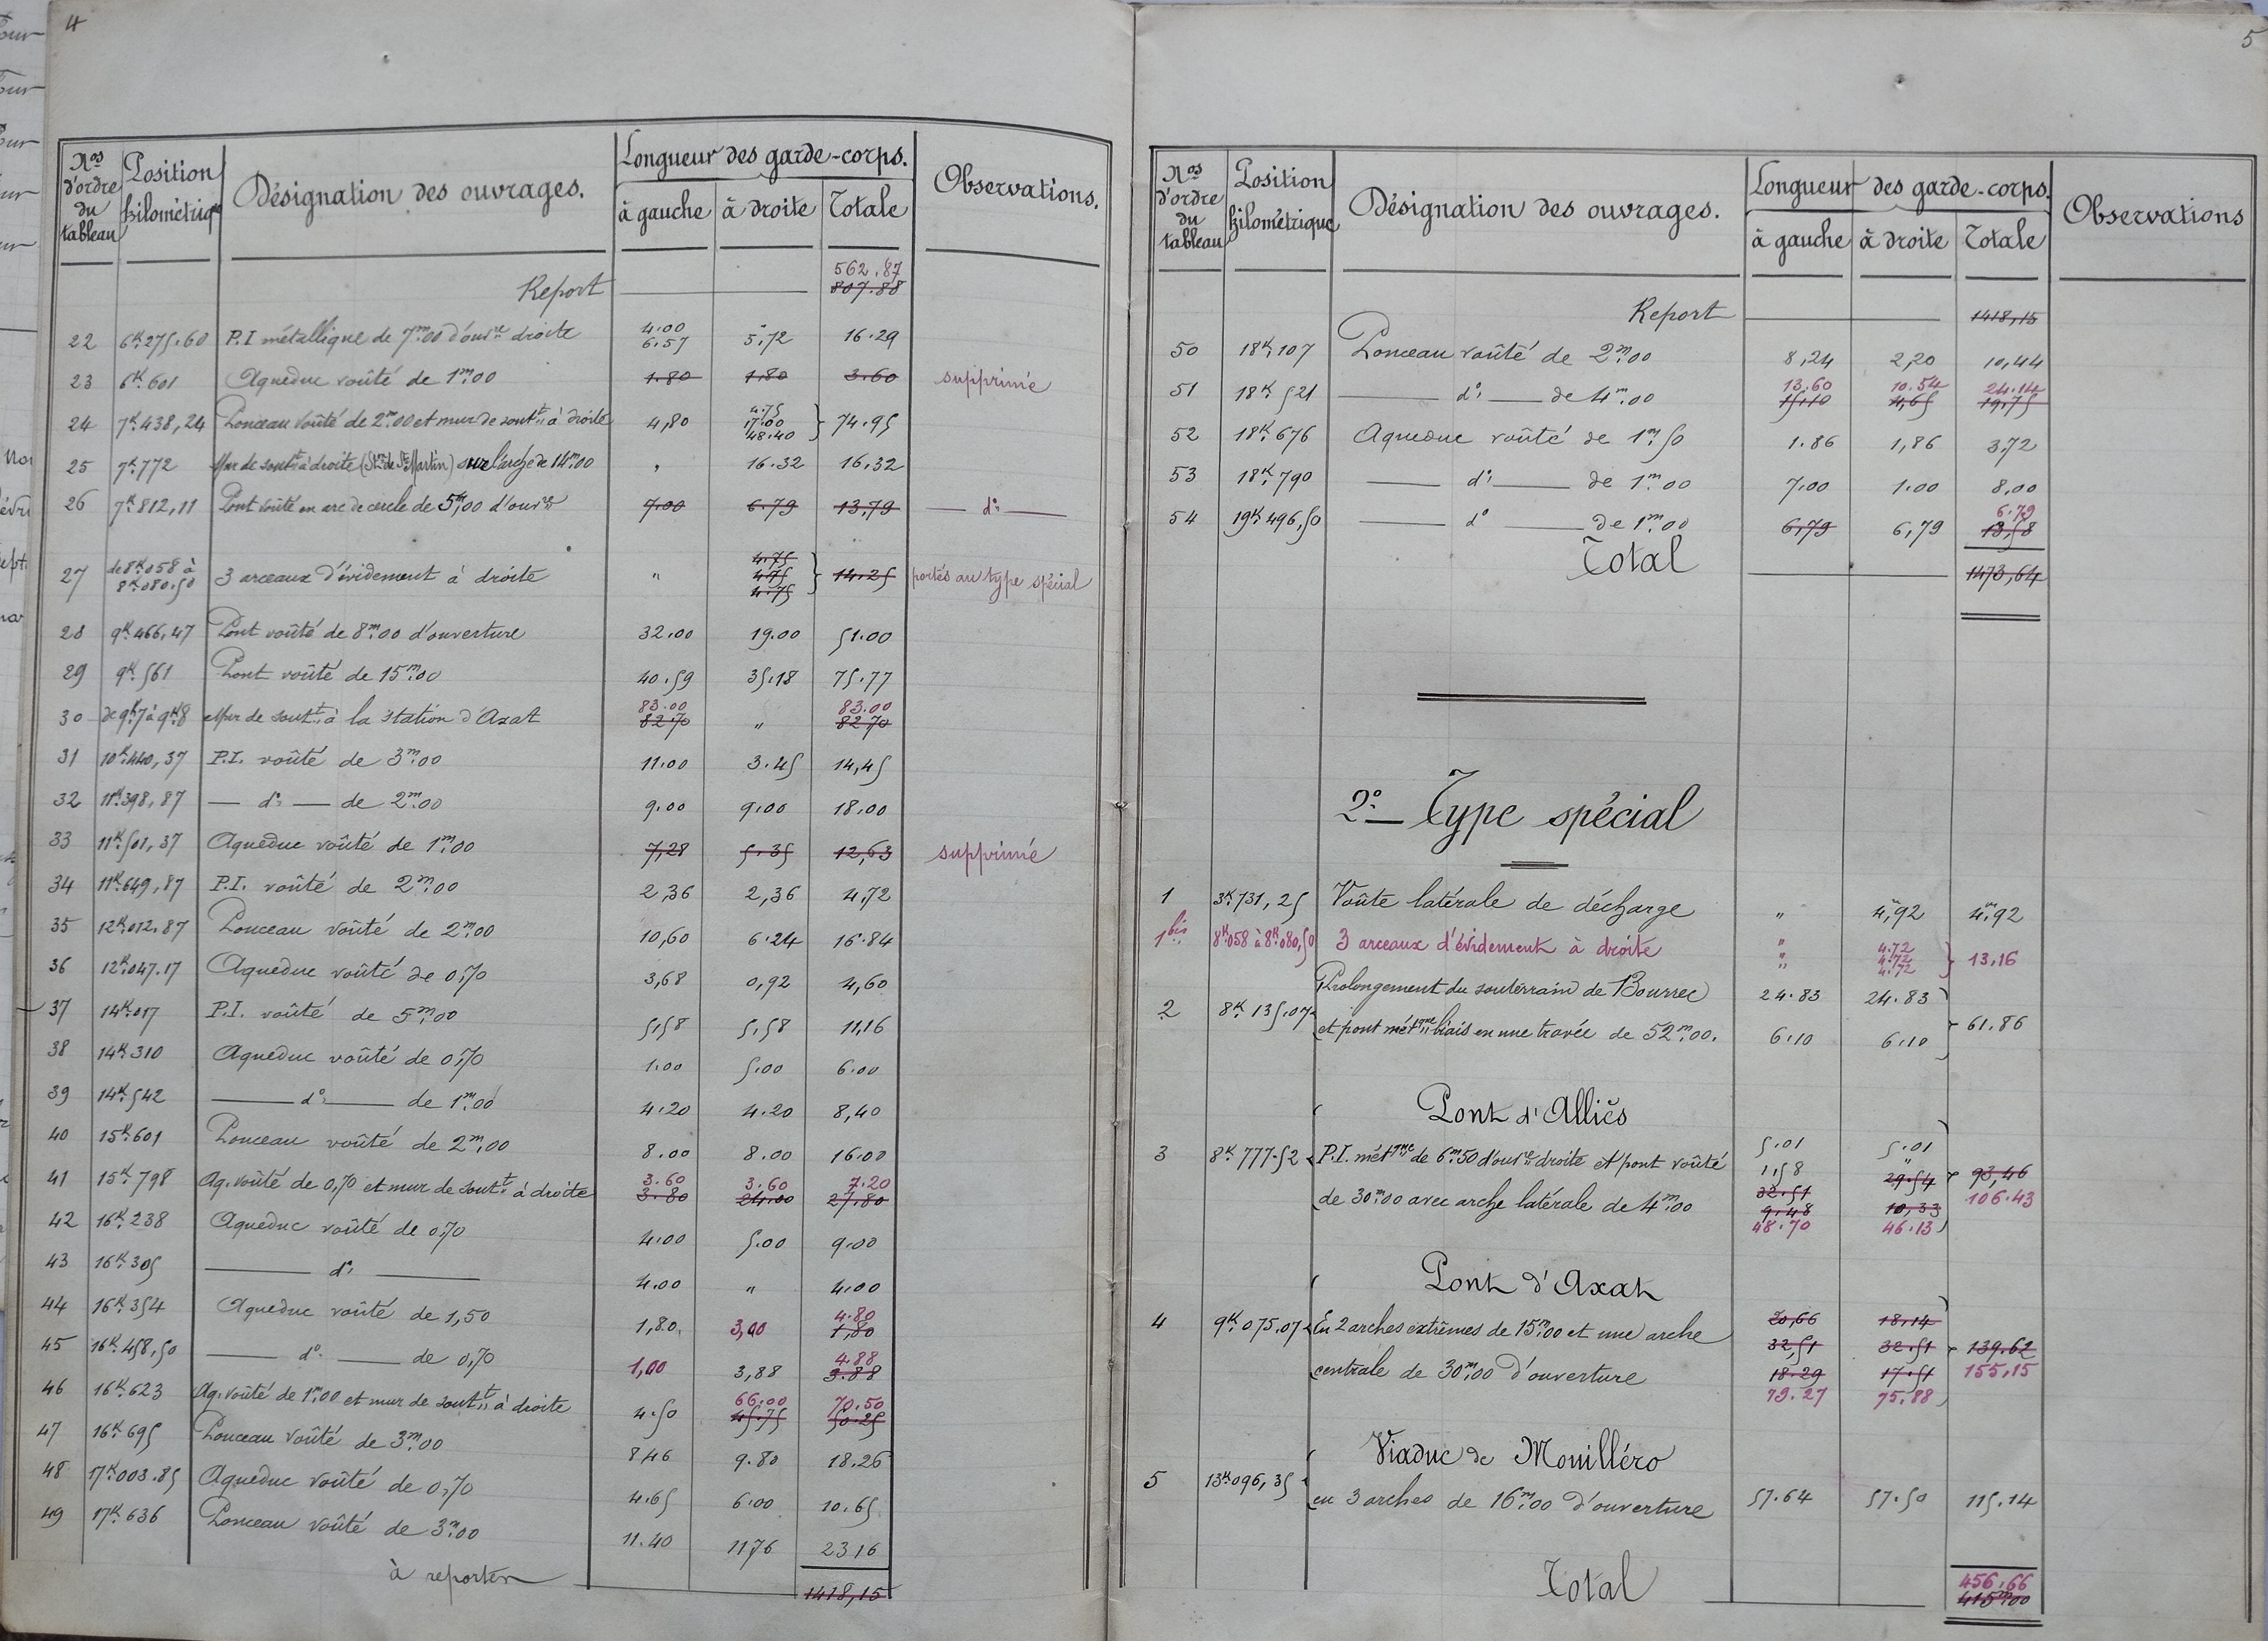 4
Nos d'ordre du tableau | Position kilométrique | Désignation des ouvrages. | Longueur des garde-corps. | Observations.
à gauche | à droite | Totale
562.87
Report 807.88
22 | 6k.275.60 | P.I métallique de 7m00 d'ouvre droite | 4.00 6.57 | 5.72 | 16.29
23 | 6k.601 | Aqueduc voûté de 1m00 | 1.80 | 1.80 | 3.60 | supprimé
24 | 7k.438,24 | Ponceau voûté de 2m00 et mur de soutt à droite | 4,80 | 4.75 17.00 48.40 | 74.95
25 | 7k.772 | Mur de soutt à droite (Stn de St Martin) sur l'arche de 14m00 | " | 16.32 | 16,32
26 | 7k.812,11 | Pont voûté en arc de cercle de 5m,00 d'ouvre | 7.00 | 6.79 | 13,79 | — do —
27 | de 8k.058 à 8k.080.50 | 3 arceaux d'évidement à droite | " | 4.75 4.75 4.75 | 14.25 | portés au type spécial
28 | 9k.466,47 | Pont voûté de 8m00 d'ouverture | 32.00 | 19.00 | 51.00
29 | 9k.561 | Pont voûté de 15m00 | 40.59 | 35.18 | 75.77
30 | de 9k.7 à 9k.8 | Mur de soutt à la station d'Axat | 83.00 82.70 | " | 83.00 82.70
31 | 10k.440,37 | P.I. voûté de 3m00 | 11.00 | 3.45 | 14,45
32 | 11k.398,87 | — do — de 2m00 | 9.00 | 9.00 | 18.00
33 | 11k.501,37 | Aqueduc voûté de 1m00 | 7,28 | 5.35 | 12,63 | supprimé
34 | 11k.649,87 | P.I. voûté de 2m00 | 2,36 | 2,36 | 4,72
35 | 12k.012.87 | Ponceau voûté de 2m00 | 10,60 | 6.24 | 16.84
36 | 12k.047.17 | Aqueduc voûté de 0,70 | 3,68 | 0,92 | 4,60
37 | 14k.017 | P.I. voûté de 5m00 | 5,58 | 5,58 | 11,16
38 | 14k.310 | Aqueduc voûté de 0,70 | 1.00 | 5.00 | 6.00
39 | 14k.542 | — do — de 1m00 | 4.20 | 4.20 | 8,40
40 | 15k.601 | Ponceau voûté de 2m00 | 8.00 | 8.00 | 16.00
41 | 15k.798 | Aq. voûté de 0,70 et mur de soutt à droite | 3.60 3.80 | 3.60 24.00 | 7.20 27.80
42 | 16k.238 | Aqueduc voûté de 0,70 | 4.00 | 5.00 | 9.00
43 | 16k.305 | — do — | 4.00 | " | 4.00
44 | 16k.354 | Aqueduc voûté de 1,50 | 1,80 | 3,00 | 4.80 1,80
45 | 16k.458,50 | — do — de 0,70 | 1,00 | 3,88 | 4.88 3.88
46 | 16k.623 | Aq. voûté de 1m00 et mur de soutt à droite | 4.50 | 66.00 45.75 | 70.50 50.25
47 | 16k.695 | Ponceau voûté de 3m00 | 8,46 | 9.80 | 18.26
48 | 17k.003.85 | Aqueduc voûté de 0,70 | 4.65 | 6.00 | 10.65
49 | 17k.636 | Ponceau voûté de 3m00 | 11.40 | 11,76 | 23,16
à reporter 1418,15
5
Nos d'ordre du tableau | Position kilométrique | Désignation des ouvrages. | Longueur des garde-corps. | Observations
à gauche | à droite | Totale
Report 1418,15
50 | 18k.107 | Ponceau voûté de 2m00 | 8,24 | 2,20 | 10,44
51 | 18k.521 | — do — de 4m00 | 13,60 15,10 | 10.54 4,65 | 24.14 19,75
52 | 18k.676 | Aqueduc voûté de 1m50 | 1.86 | 1,86 | 3,72
53 | 18k.790 | — do — de 1m00 | 7.00 | 1.00 | 8,00
54 | 19k.496,50 | — do — de 1m00 | 6,79 | 6,79 | 6.79 13,58
Total 1473,64
2o — Type spécial
1 | 3k.731,25 | Voûte latérale de décharge | " | 4m,92 | 4m,92
1bis | 8k.058 à 8k.080,50 | 3 arceaux d'évidement à droite | " " " | 4.72 4.72 4.72 | 13,16
2 | 8k.135.07 | Prolongement du souterrain de Bourrec | 24.83 | 24.83
et pont métque biais en une travée de 52m00. | 6.10 | 6.10 | 61.86
Pont d'Alliès
3 | 8k.777.52 | P.I. métque de 6m50 d'ouvre droite et pont voûté | 5.01 1,58 | 5.01 "
de 30m00 avec arche latérale de 4m00 | 32.51 9.48 48.70 | 29.54 10,33 46.13 | 93,46 106.43
Pont d'Axat
4 | 9k.075.07 | En 2 arches extrêmes de 15m00 et une arche | 20,66 32,51 | 18,14 32.51 | 139.62
centrale de 30m00 d'ouverture | 18.29 79.27 | 17.51 75,88 | 155,15
Viaduc de Mouilléro
5 | 13k.096,35 | en 3 arches de 16m00 d'ouverture | 57.64 | 57.50 | 115.14
Total 456,66
415m00